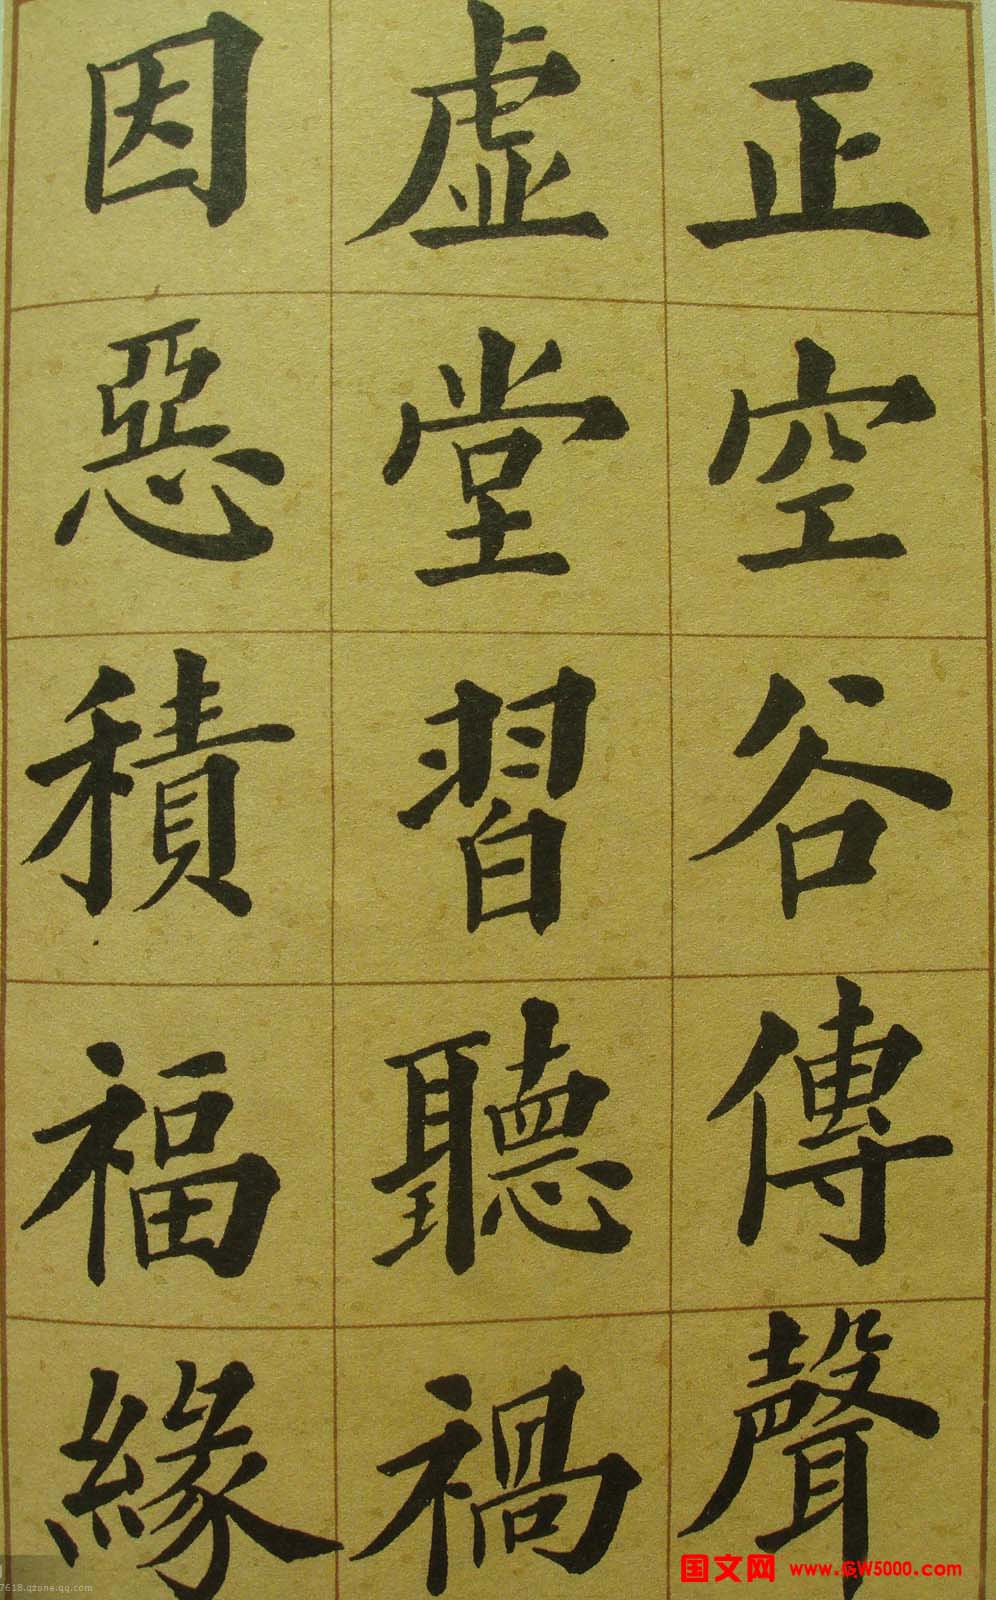 正空谷傳聲
虛堂習聽禍
因惡積福緣
国文网 www.GW5000.com
7618.qzone.qq.com